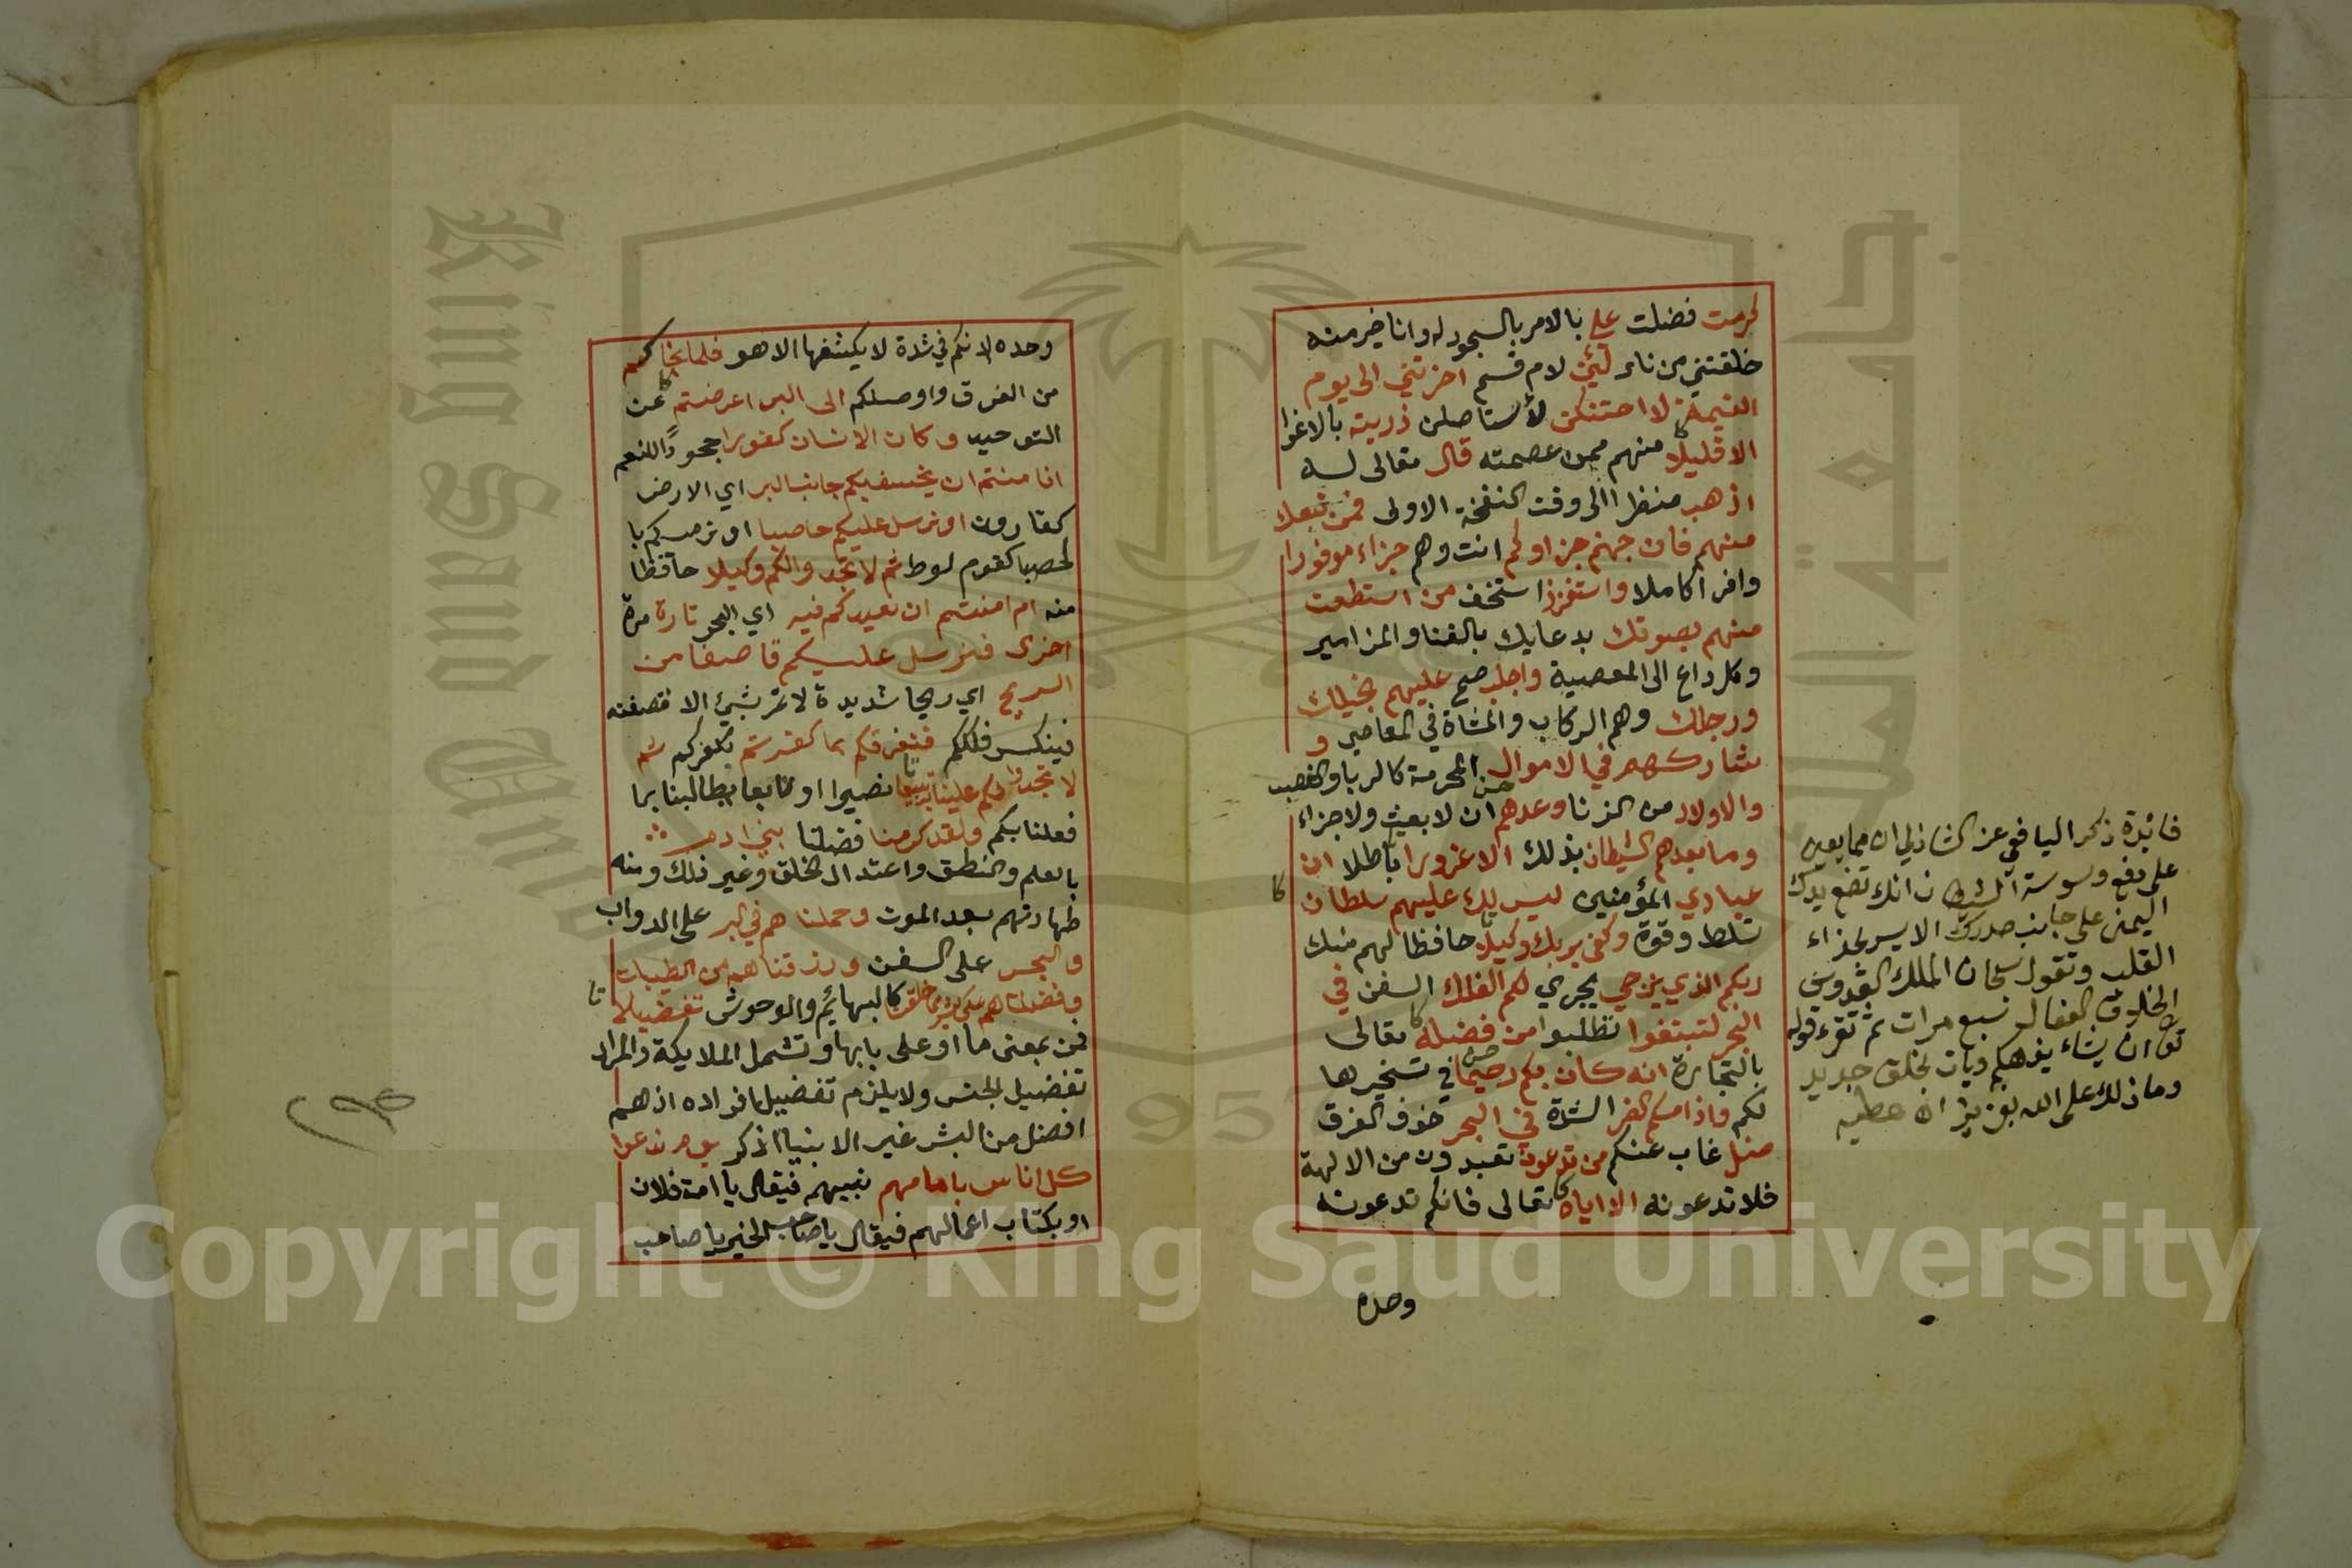 كرمت فضلت علي بالامر بالسجود له وانا خير منه
خلقتني من نار لئن لام قسم اخرتني الى يوم
القيمة لاحتنكن لأستاصلن ذريته بالاغوا
الا قليلا منهم ممن عصمته قال تعالى له
اذهب منظرا الى وقت النفخة الاولى فمن تبعك
منهم فان جهنم جزاوكم انت وهم جزاء موفورا
وافرا كاملا واستفزز استخف من استطعت
منهم بصوتك بدعايك بالغنا والمزامير
وكل داع الى المعصية واجلب صح عليهم بخيلك
ورجلك وهم الركاب والمشاة في المعاصي و
شاركهم في الاموال المحرمة كالربا والغصب
والاولاد من الزنا وعدهم ان لا بعث ولا جزاء
وما يعدهم الشيطان بذلك الا غرورا باطلا ان
عبادي المؤمنين ليس لك عليهم سلطان
تسلط وقوة وكفى بربك وكيلا حافظا لهم منك
ربكم الذي يزجي يجري لكم الفلك السفن في
البحر لتبتغوا تطلبوا من فضله تعالى
بالتجارة انه كان بكم رحيما في تسخيرها
لكم واذا مسكم الضر الشدة في البحر خوف الغرق
ضل غاب عنكم من تدعون تعبدون من الالهة
فلا تدعونه الا اياه تعالى فانكم تدعونه
وحده
فائدة ذكر اليافعي عن الشاذلي ان مما يعين
على دفع وسوسة الشيطان انك تضع يدك
اليمنى على جانب صدرك الايسر بحذاء
القلب وتقول سبحان الملك القدوس
الخلاق الفعال سبع مرات ثم تقرء قوله
تع ان يشاء يذهبكم ويات بخلق جديد
وما ذلك على الله بعزيز اه عطيه
وحده لانكم في شدة لا يكشفها الا هو فلما نجاكم
من الغرق واوصلكم الى البر اعرضتم عن
التوحيد وكان الانسان كفورا جحودا للنعم
افامنتم ان يخسف بكم جانب البر اي الارض
كقارون او نرسل عليكم حاصبا او نرميكم با
لحصبا كقوم لوط ثم لا تجدوا لكم وكيلا حافظا
منه ام امنتم ان نعيدكم فيه اي البحر تارة مرة
اخرى فنرسل عليكم قاصفا من
الريح اي ريحا شديدة لا تمر بشيئ الا قصفته
فينكسر فلككم فنغرقكم بما كفرتم بكفركم ثم
لا تجدوا لكم علينا به تبيعا نصيرا او تابعا يطالبنا بما
فعلنا بكم ولقد كرمنا فضلنا بني ادم
بالعلم والنطق واعتدال الخلق وغير ذلك ومنه
طهارتهم بعد الموت وحملناهم في البر على الدواب
والبحر على السفن ورزقناهم من الطيبات
وفضلناهم على كثير ممن خلقنا كالبهائم والوحوش تفضيلا
فمن بمعنى ما او على بابها وتشمل الملايكة والمراد
تفضيل الجنس ولا يلزم تفضيل افراده اذ هم
افضل من البشر غير الانبياء اذكر يوم ندعوا
كل اناس بامامهم نبيهم فيقال يا امة فلان
او بكتاب اعمالهم فيقال يا صاحب الخير يا صاحب